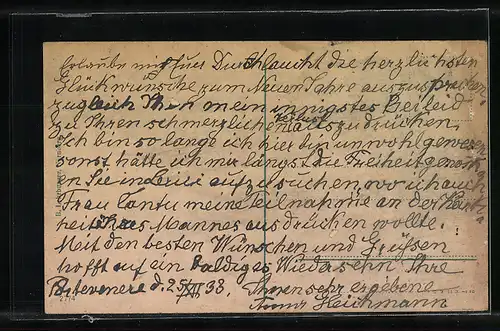 Erlaube mir Euer Durchlaucht die herzlichsten
Glückwünsche zum Neuen Jahre auszusprechen
zugleich Ihnen mein innigstes Beileid
zu Ihren schmerzlichen Verlust auszudrücken.
Ich bin so lange ich hier bin unwohl gewesen
sonst hätte ich mir längst die Freiheit genommen
Sie in Lerici aufzusuchen, wo ich auch
Frau meine Teilnahme an der Krankheit
ihres Mannes ausdrücken wollte.
Mit den besten Wünschen und Grüssen
hofft auf ein baldiges Wiedersehn Ihre
Ihnen sehr ergebene
Portovenere d. 25/XII 33.
Heichmann
2714